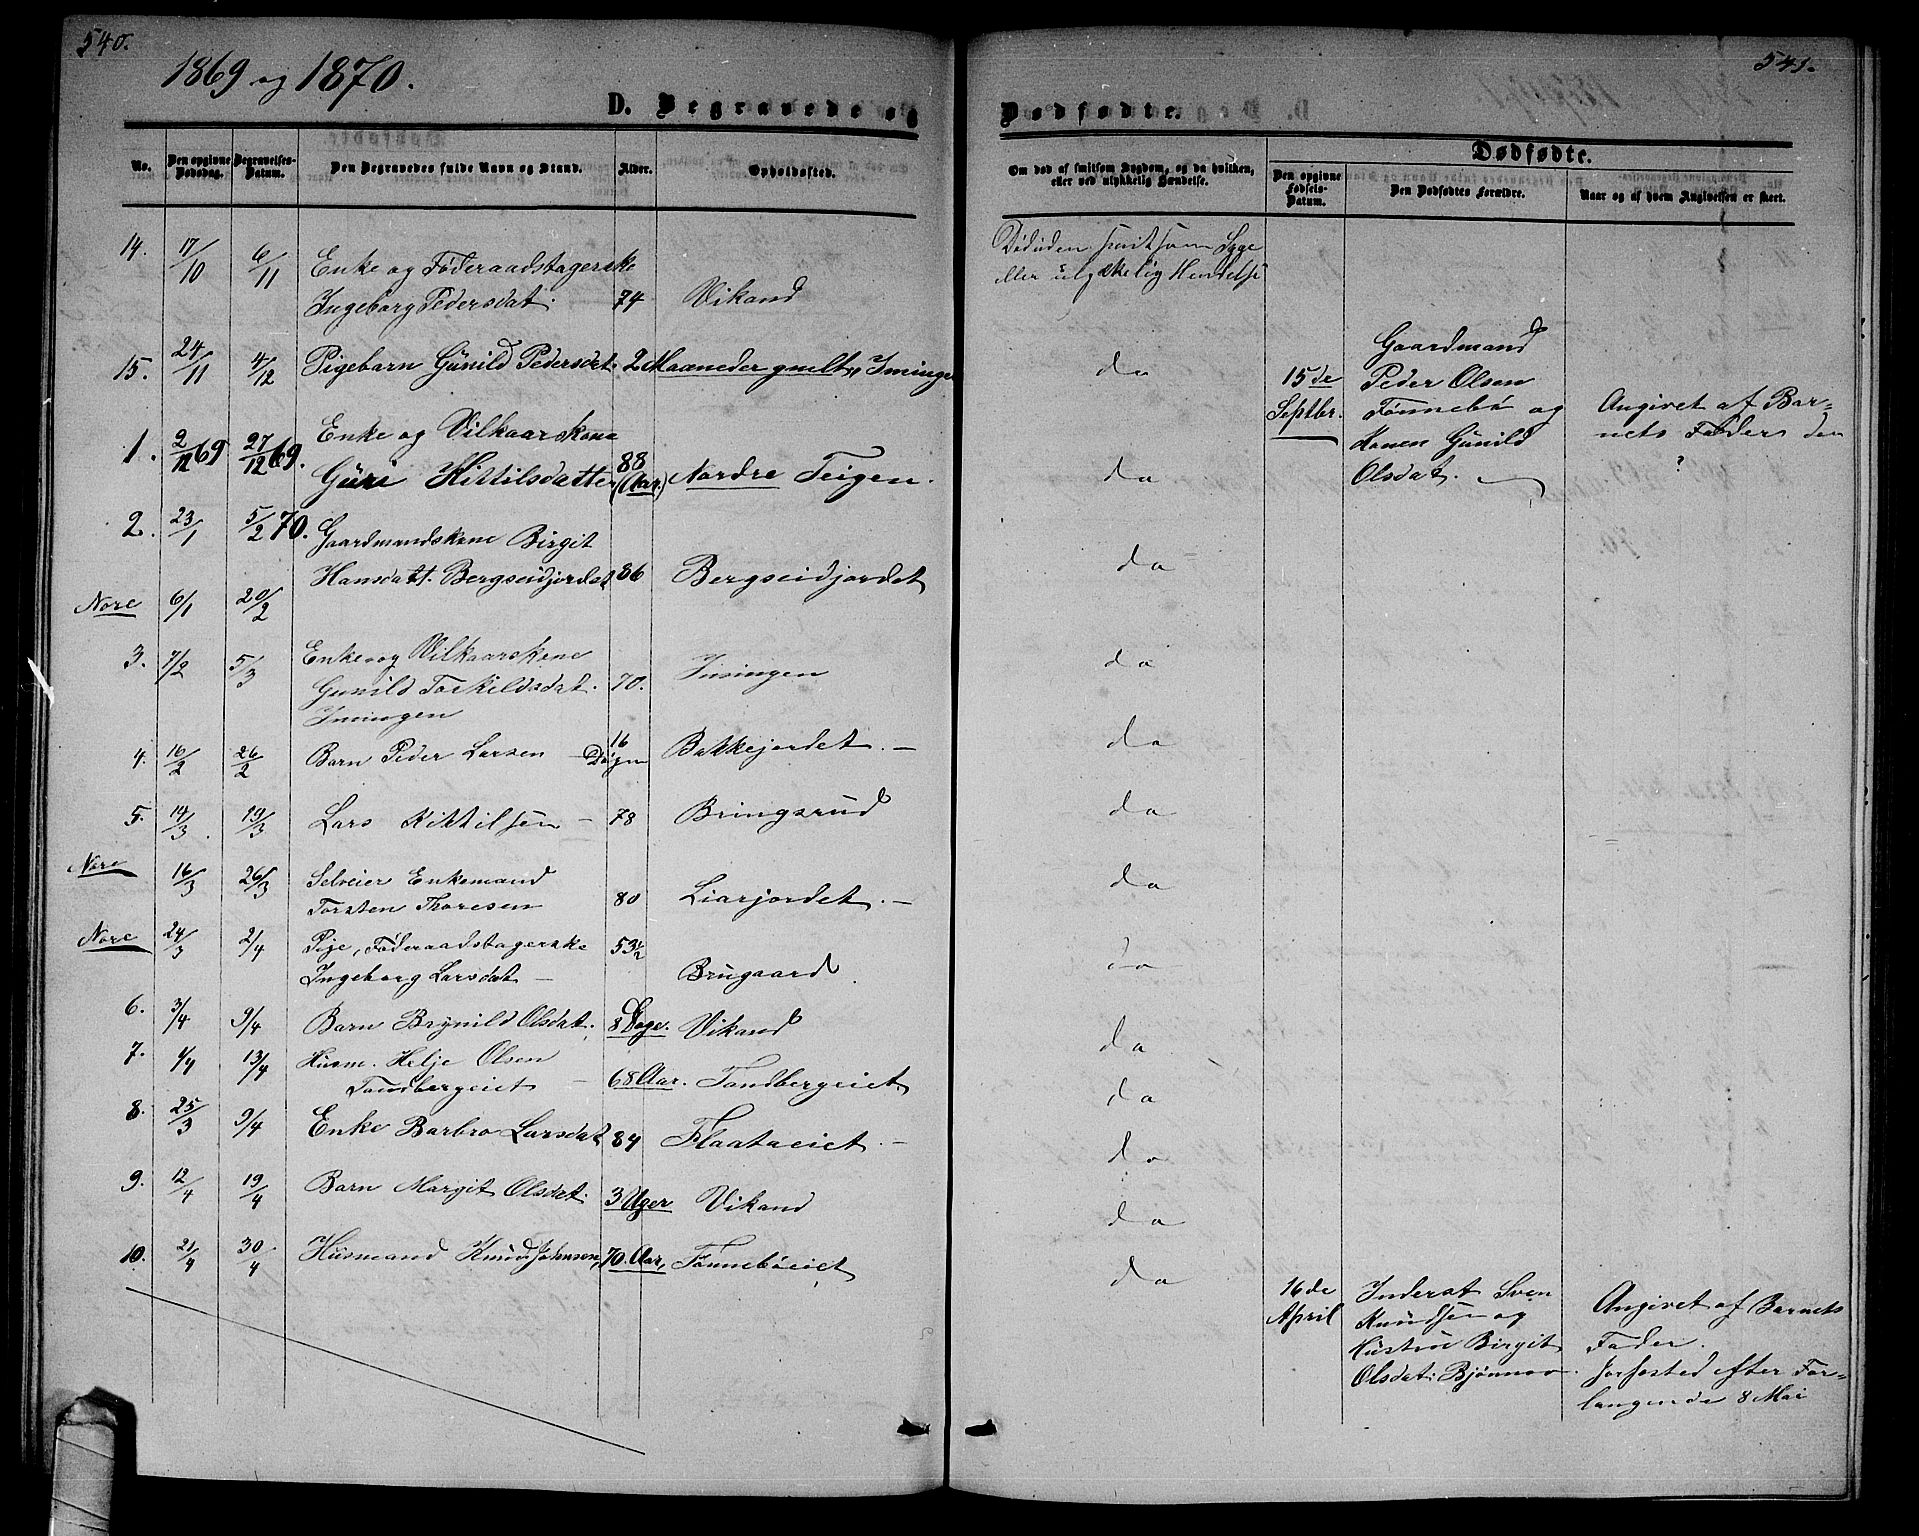 540.
1869 og 1870.
D. Begravede og
No.
Den opgivne Dødsdag.
Begravelses-Datum.
Den Begravedes fulde Navn og Stand.
Alder.
Opholdssted.
14. 17/10 6/11 Enke og Føderaadstagerske
Ingeborg Pedersdat. 74 Vikand
15. 24/11 4/12 Pigebarn Günild Pedersdat. 2 Maaneder gmelt, Imingen
1. 2/12 69 27/12 69. Enke og Vilkaarskone
Güri Kittilsdatter 88 (Aar.) Nordre Teigen.
2. 23/1 5/2 70. Gaardmandskone Birgit
Hansdatt. Bergseidjordet 86 Bergseidjordet
Nore 6/1 20/2
3. 7/2 5/3 Enke og Vilkaarskone
Gunild Torkildsdat. 70. Imingen
Imingen
4. 16/2 26/2 Barn Peder Larsen – 16 Døgn Bakkejordet. –
5. 14/3 19/3 Lars Kittilsen – 78 Bringsrud
Nore 16/3 26/3 Selveier Enkemand
Torsten Thoresen 80 Liarjordet. –
Nore 24/3 2/4 Pige, Føderaadstagerske
Ingeborg Larsdat – 53 1/2 Brugaard
6. 3/4 9/4 Barn Brynild Olsdat. 8 Dage. Vikand
7. 4/4 13/4 Husm. Helje Olsen
Tandbergeiet – 68 Aar. Tandbergeiet.
8. 25/3 9/4 Enke Barbro Larsdat 84 Flaataeiet. –
9. 12/4 19/4 Barn Margit Olsdat. 3 Uger Vikand
10. 21/4 30/4 Husmand Knud Johnsen, 70. Aar, Tønnebøeiet
541.
Dødfødte.
Om død af smitsom Sygdom, og da hvilken,
eller ved ulykkelig Hændelse.
Dødfødte.
Den opgivne Fødsels-Datum.
Den Dødfødtes Forældre.
Naar og af hvem Angivelsen er skeet.
Død uden smitsom Syge
eller ulykkelig Hendelse
do
15de
Septbr.
Gaardmand
Peder Olsen
Tønnebø og
Konen Günild
Olsdat.
Angivet af Bar-
nets Fader den
?
do
do
do
do
do
do
do
do
do
do
do
do
16de
April
Inderst Sven
Knudsen og
Hustru Birgit
Olsdat: Bjønnov
Angivet af Barnets
Fader.
Jorfæsted efter For-
langende 8 Mai